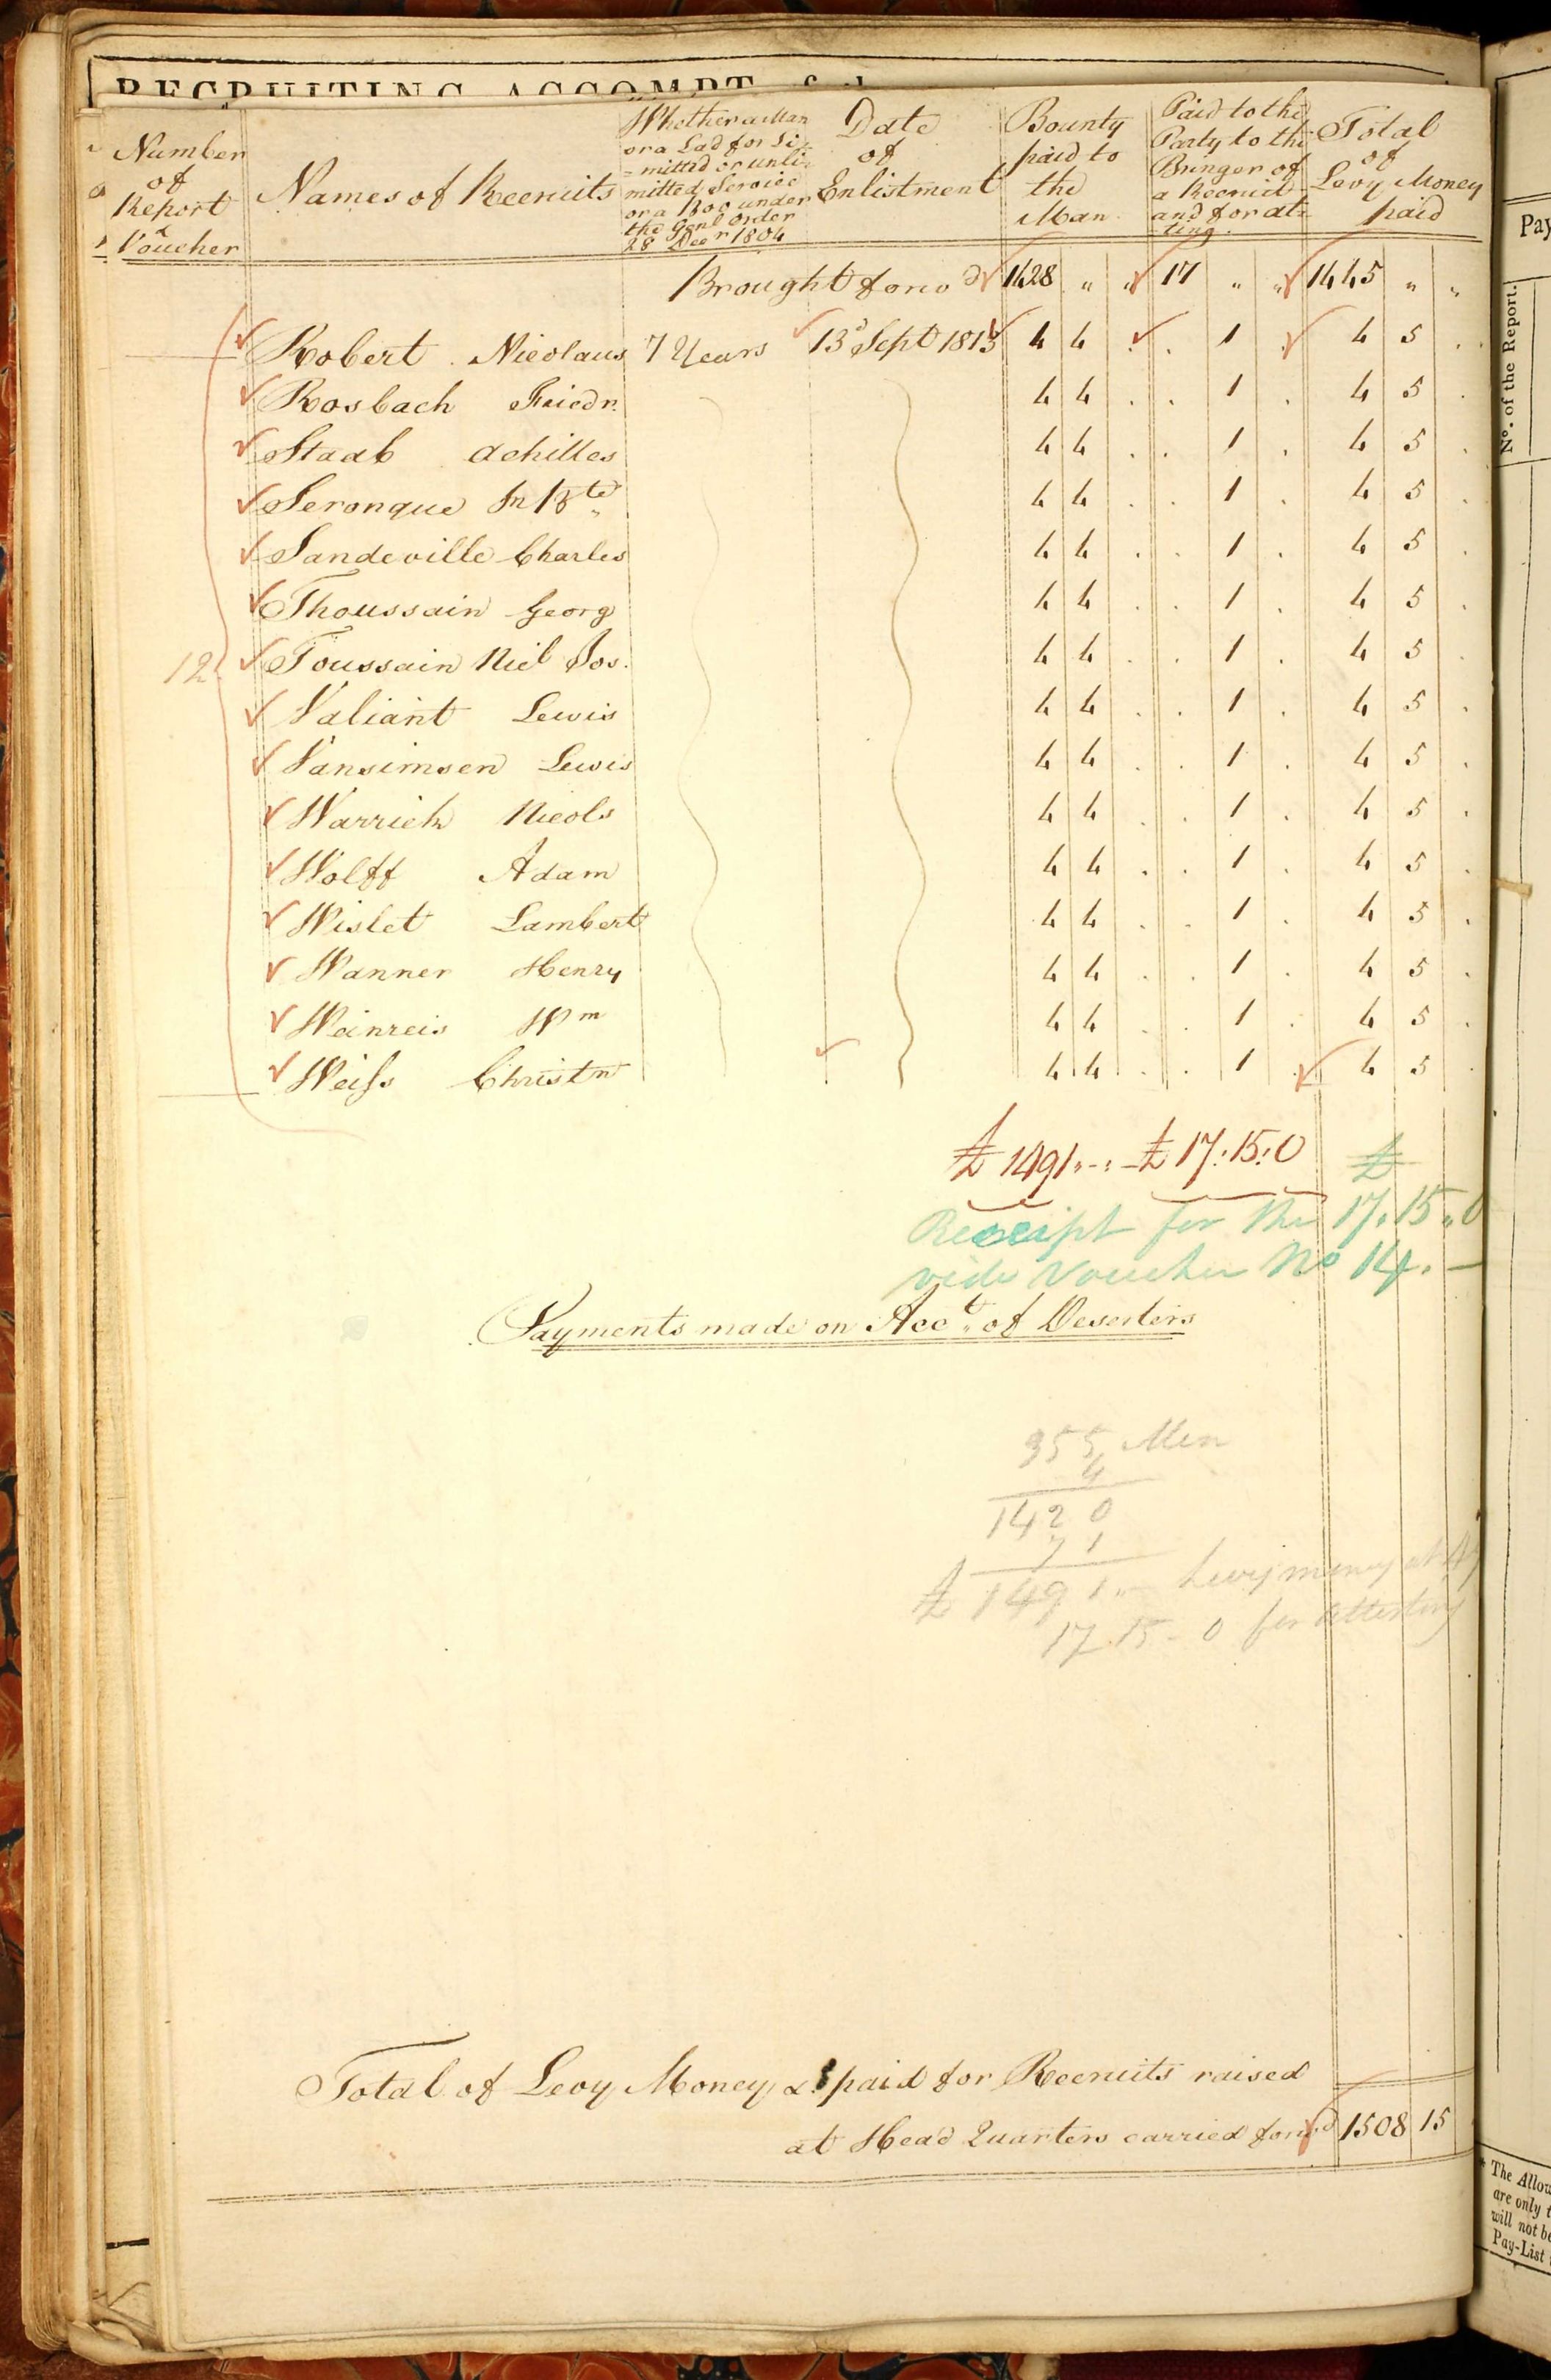 RECRUITING ACCOMPT
Number of Report & Voucher
Names of Recruits
Whether a Man or a Lad for Li=mitted or unli=mitted Service or a Boy under the Genl Order 28 Decr 1804
Date of Enlistment
Bounty paid to the Man
Paid to the Party to the Bringer of a Recruit and for at=ting.
Total of Levy Money paid
Brought forwd 1428 " " 17 " " 1445 " "
Robert Nicolaus 7 Years 13d Sept 1813 4 4 . . 1 . 4 5 .
Rosbach Friedr. 4 4 . . 1 . 4 5 .
Staab Achilles 4 4 . . 1 . 4 5 .
Seronque Jn Bte 4 4 . . 1 . 4 5 .
Sandeville Charles 4 4 . . 1 . 4 5 .
Thoussain Georg 4 4 . . 1 . 4 5 .
12 Toussain Nicl Jos. 4 4 . . 1 . 4 5 .
Valiant Lewis 4 4 . . 1 . 4 5 .
Vansimsen Lewis 4 4 . . 1 . 4 5 .
Warrich Nicols 4 4 . . 1 . 4 5 .
Wolff Adam 4 4 . . 1 . 4 5 .
Wislet Lambert 4 4 . . 1 . 4 5 .
Wanner Henry 4 4 . . 1 . 4 5 .
Weinreis Wm 4 4 . . 1 . 4 5 .
Weiſs Christn 4 4 . . 1 . 4 5 .
£ 1491 " - : - £ 17 : 15 : 0
£
Receipt for the 17 " 15 " 0
vide Voucher No 14. -
Payments made on Acct of Deserters
355 Men
4
1420
71
£ 1491 " - Levy money at
17 15 - 0 for attesting
Total of Levy Money &c paid for Recruits raised
at Head Quarters carried forwd 1508 15
Pay
No. of the Report.
* The Allow
are only t
will not be
Pay-List